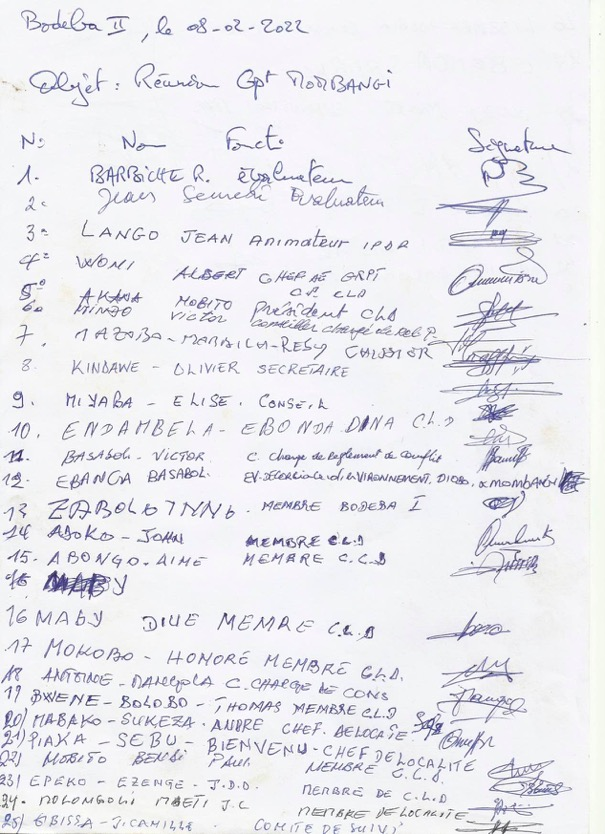 Bodeba II, le 08-02-2022
Objet : Réunion Gpt MOMBANGI
N: Nom Foncti: Signature
1. BARBICHE R. évaluateur
2- Jean Semedi Evaluateur
3- LANGO JEAN Animateur
4- WONI ALBERT CHEF DE GRPT
5- AKANA MOBITO C.P. CLD
6- Victor Président CLD
7. Conseiller chargé de
8. KINDAWE - OLIVIER SECRETAIRE
9. MIYABA - ELISE. CONSEIL
10. ENDAMBELA - EBONDA DINA C.L.D
11. BASABOL - VICTOR C. chargé de Reglement de conflit
12. EBANGA BASABOL. MOMBANGI
13 MEMBRE BODEBA I
14 ABOKO - JOHN MEMBRE C.L.D
15. ABONGO - AIME MEMBRE C.L.D
16 MABY DIUE MEMRE C.L.D
17 MOKOBO - HONORÉ MEMBRE C.L.D.
18 ANTOINE - C. CHARGE DE CONS
19 BWENE - BOLOBO - THOMAS MEMBRE C.L.D
20) MABAKO - SUKEZA. ANDRE CHEF. DELOCALITE
21) PIAKA - SEBU - BIENVENU - CHEF DE LOCALITE
22) MOBITO BENDI PAUL MEMBRE C.L.D.
23) EPEKO - EZENGE - J.D.D. MEMBRE DE C.L.D
24. MOLONGOLI MBETI J.C MEMBRE DE LOCALITE
25) EBISSA - J. CAMILLE. COMITE DE SUIVI